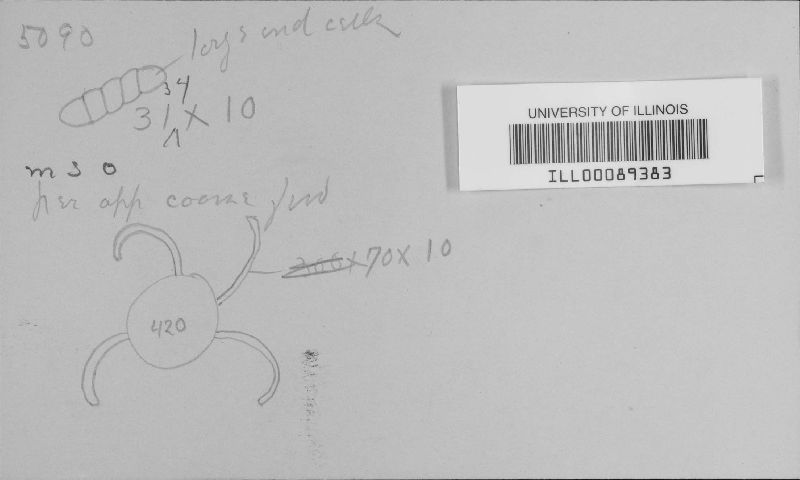 5090
end cells
34
31 X 10
m s o
per app coarse
70 X 10
420
UNIVERSITY OF ILLINOIS
ILL00089383